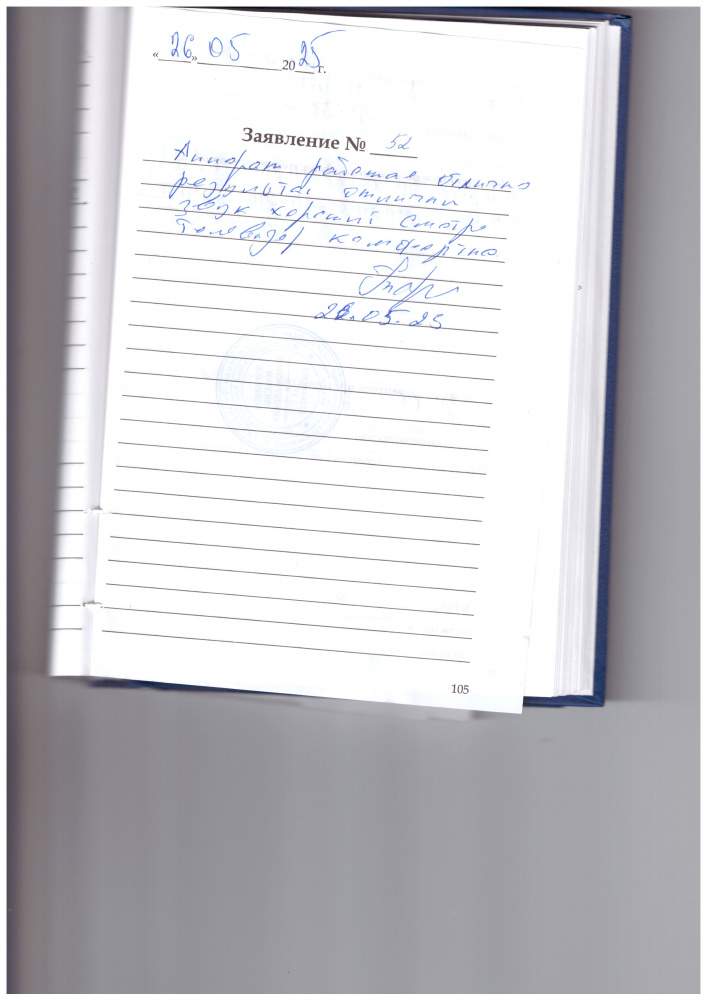 «26» 05 2025 г.
Заявление № 52
Аппарат работае отлично
результат отлични
звук хороший Смотрю
телевизор комфортно
26.05.25
105